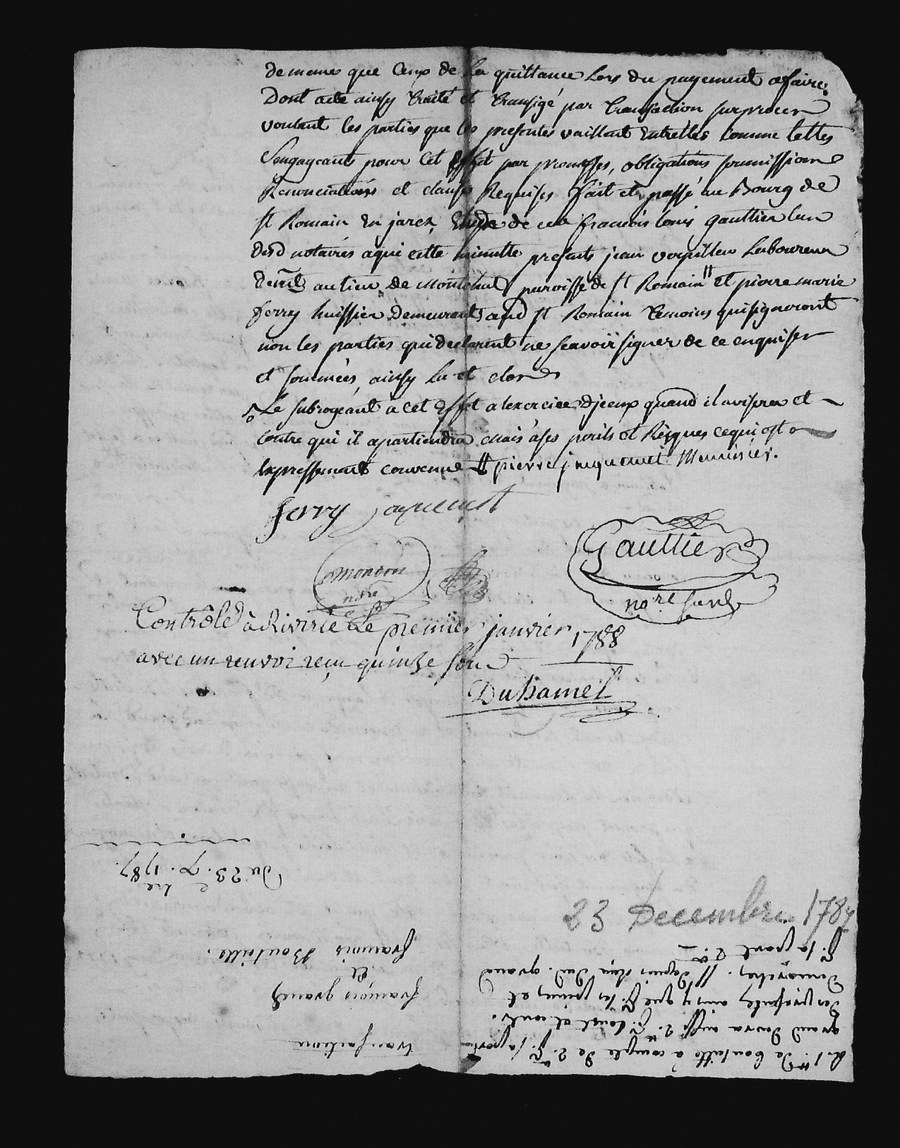 de memes que Ceux de La quittance Lors du payement afaire.
Dont acte ainsy traité et transigé par transaction sur proces
voulant les parties que les presentes vaillant Entr'elles comme telles
s'engageant pour cet Effet par promesses, obligations soumissions
Renonciations et clauses Requises. fait et passé au Bourg de
st Romain En jarez Etude de me francois Louis gaultier L'un
desd notaires aqui cette minutte presents jean Laboureur
au lieu de paroisse de st Romain et pierre marie
ferry huissier demeurants aud st Romain temoins qui signeront
non les parties qui declarent ne scavoir signer de ce enquises
et sommées, ainsy Lu et clos
Le subrogeant a cet Effet a lexercice d'jceux quand il avisera et
contre qui il apartiendra Mais a ses perils et Risques ce qui est
expressement convenue # pierre jaquemet Menuisier.
ferry Jaquemet
Gaultier
nore
nore
Contrôlé à Riverie Le premier janvier 1788
avec un renvoi reçu quinze sous
DuHamel
23 Decembre 1787
transaction
françois grand
et
francois Bontaille.
Du 23. xbre 1787.